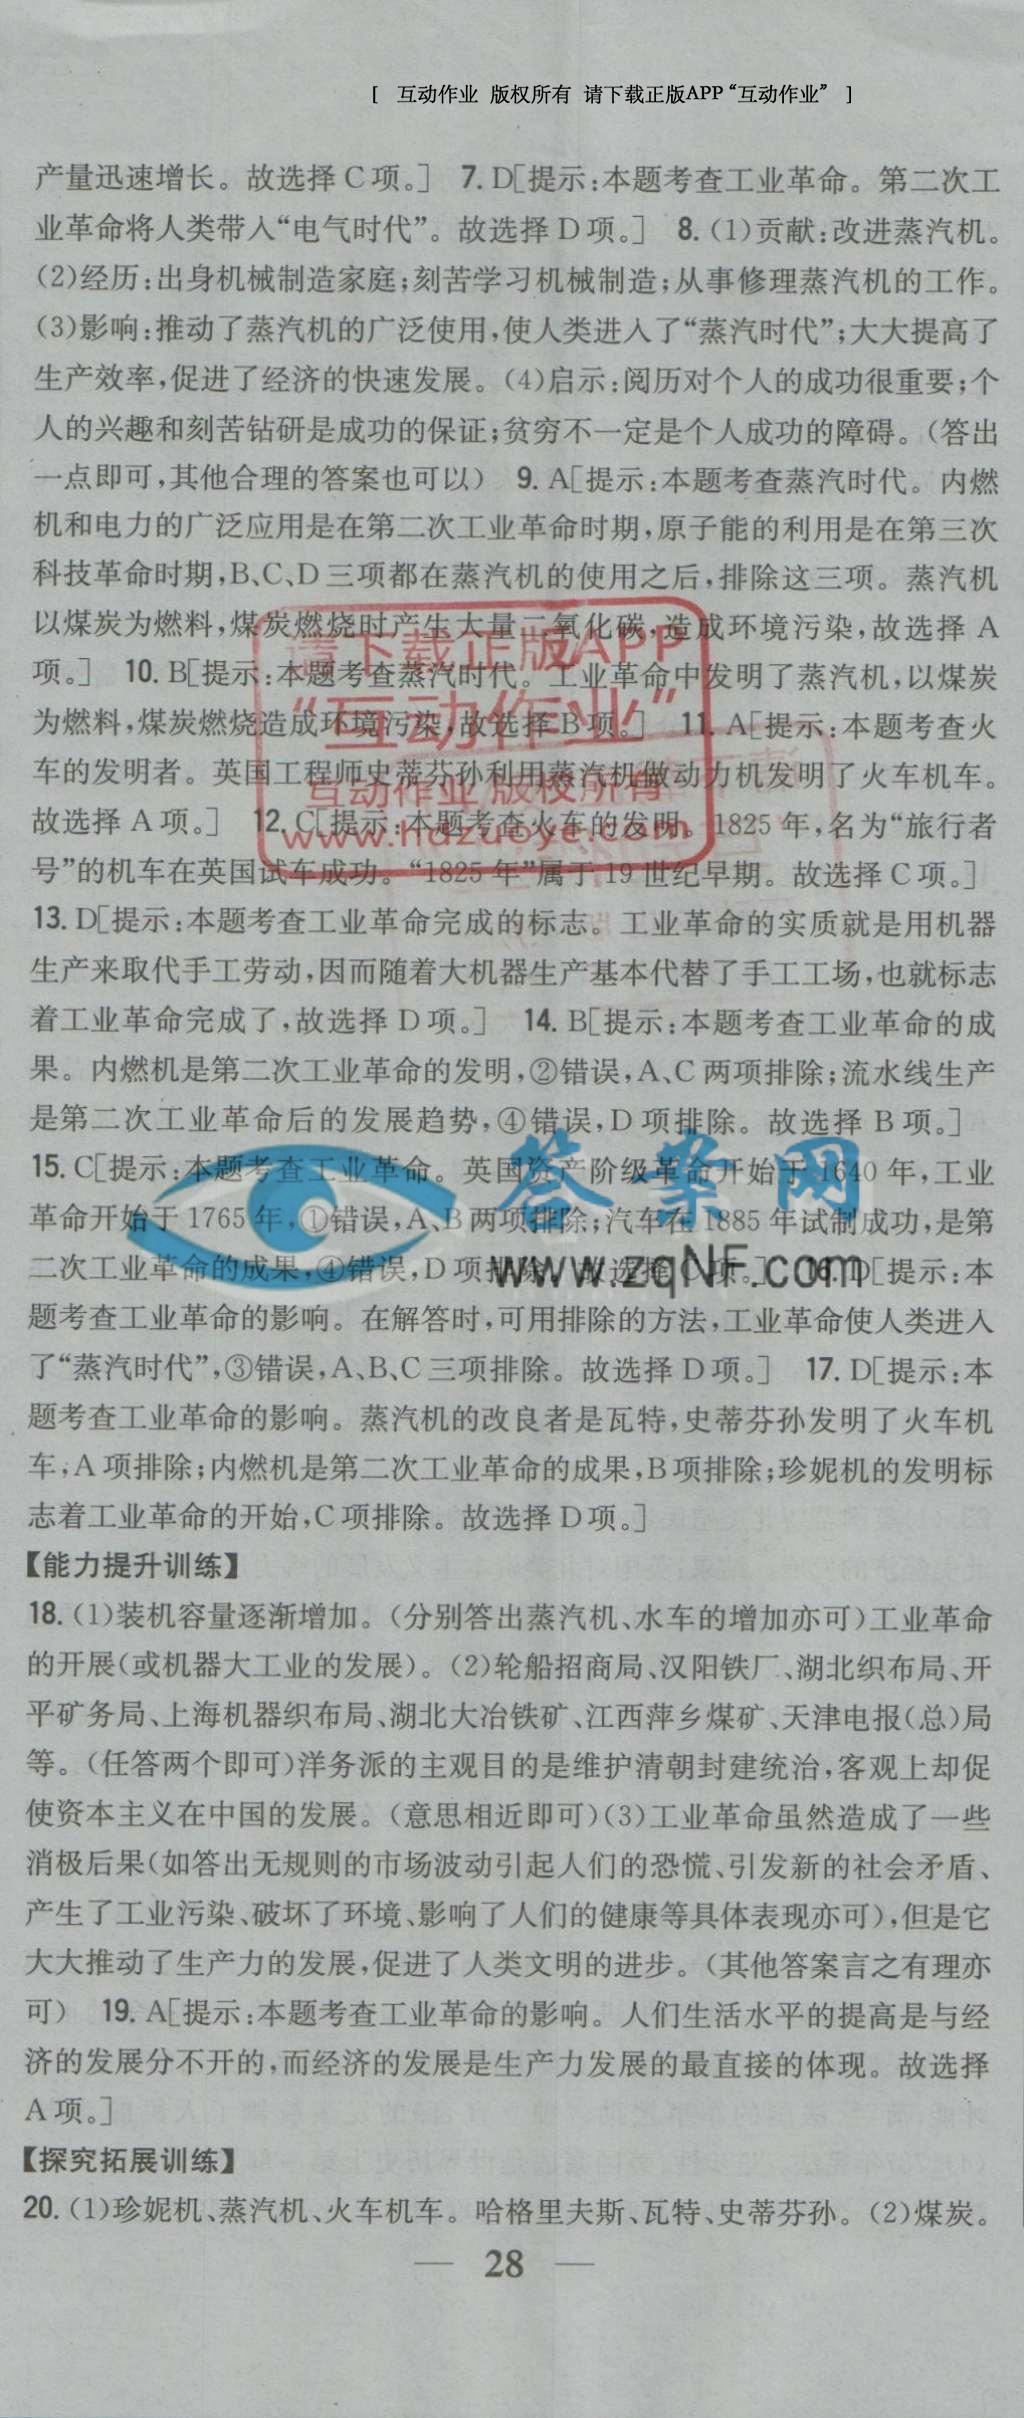 [ 互动作业 版权所有 请下载正版APP“互动作业” ]
产量迅速增长。故选择C项。] 7. D[提示:本题考查工业革命。第二次工
业革命将人类带入“电气时代”。故选择D项。] 8. (1)贡献:改进蒸汽机。
(2)经历:出身机械制造家庭;刻苦学习机械制造;从事修理蒸汽机的工作。
(3)影响:推动了蒸汽机的广泛使用,使人类进入了“蒸汽时代”;大大提高了
生产效率,促进了经济的快速发展。(4)启示:阅历对个人的成功很重要;个
人的兴趣和刻苦钻研是成功的保证;贫穷不一定是个人成功的障碍。(答出
一点即可,其他合理的答案也可以) 9. A[提示:本题考查蒸汽时代。内燃
机和电力的广泛应用是在第二次工业革命时期,原子能的利用是在第三次
科技革命时期,B、C、D三项都在蒸汽机的使用之后,排除这三项。蒸汽机
以煤炭为燃料,煤炭燃烧时产生大量二氧化碳,造成环境污染,故选择A
项。] 10. B[提示:本题考查蒸汽时代。工业革命中发明了蒸汽机,以煤炭
为燃料,煤炭燃烧造成环境污染,故选择B项。] 11. A[提示:本题考查火
车的发明者。英国工程师史蒂芬孙利用蒸汽机做动力机发明了火车机车。
故选择A项。] 12. C[提示:本题考查火车的发明。1825年,名为“旅行者
号”的机车在英国试车成功。“1825年”属于19世纪早期。故选择C项。]
13. D[提示:本题考查工业革命完成的标志。工业革命的实质就是用机器
生产来取代手工劳动,因而随着大机器生产基本代替了手工工场,也就标志
着工业革命完成了,故选择D项。] 14. B[提示:本题考查工业革命的成
果。内燃机是第二次工业革命的发明,②错误,A、C两项排除;流水线生产
是第二次工业革命后的发展趋势,④错误,D项排除。故选择B项。]
15. C[提示:本题考查工业革命。英国资产阶级革命开始于1640年,工业
革命开始于1765年,①错误,A、B两项排除;汽车在1885年试制成功,是第
二次工业革命的成果,④错误,D项排除。故选择C项。] 16. D[提示:本
题考查工业革命的影响。在解答时,可用排除的方法,工业革命使人类进入
了“蒸汽时代”,③错误,A、B、C三项排除。故选择D项。] 17. D[提示:本
题考查工业革命的影响。蒸汽机的改良者是瓦特,史蒂芬孙发明了火车机
车,A项排除;内燃机是第二次工业革命的成果,B项排除;珍妮机的发明标
志着工业革命的开始,C项排除。故选择D项。]
【能力提升训练】
18. (1)装机容量逐渐增加。(分别答出蒸汽机、水车的增加亦可)工业革命
的开展(或机器大工业的发展)。(2)轮船招商局、汉阳铁厂、湖北织布局、开
平矿务局、上海机器织布局、湖北大冶铁矿、江西萍乡煤矿、天津电报(总)局
等。(任答两个即可)洋务派的主观目的是维护清朝封建统治,客观上却促
使资本主义在中国的发展。(意思相近即可)(3)工业革命虽然造成了一些
消极后果(如答出无规则的市场波动引起人们的恐慌、引发新的社会矛盾、
产生了工业污染、破坏了环境、影响了人们的健康等具体表现亦可),但是它
大大推动了生产力的发展,促进了人类文明的进步。(其他答案言之有理亦
可) 19. A[提示:本题考查工业革命的影响。人们生活水平的提高是与经
济的发展分不开的,而经济的发展是生产力发展的最直接的体现。故选择
A项。]
【探究拓展训练】
20. (1)珍妮机、蒸汽机、火车机车。哈格里夫斯、瓦特、史蒂芬孙。(2)煤炭。
28
请下载正版APP
“互动作业”
互动作业 版权所有
www.hdzuoye.com
答案网
www.zqNF.com